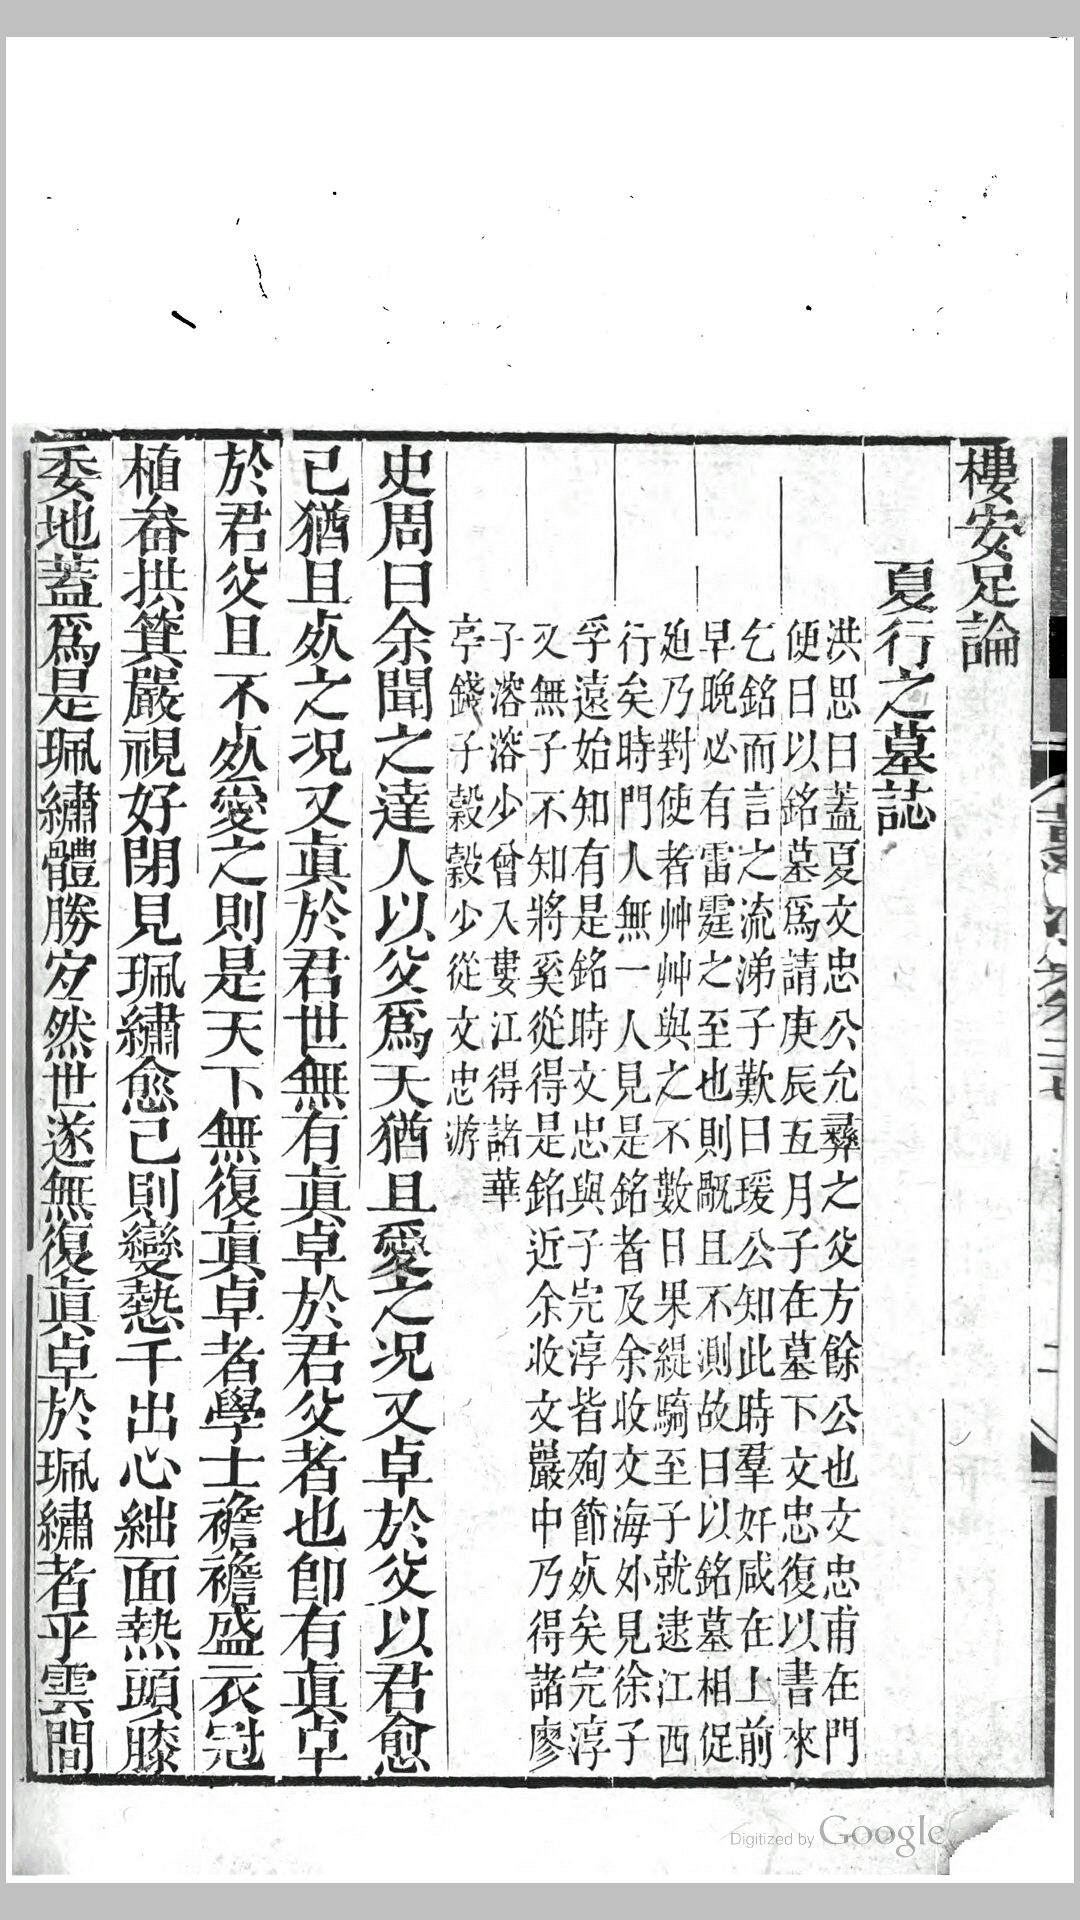 樓安足論
夏行之墓誌
洪思曰蓋夏文忠公允彞之父方餘公也文忠甫在門
便日以銘墓爲請庚辰五月子在墓下文忠復以書來
乞銘而言之流涕子歎曰瑗公知此時羣奸咸在上前
早晚必有雷霆之至也則嘅且不測故曰以銘墓相促
廹乃對使者艸艸與之不數日果緹騎至子就逮江西
行矣時門人無一人見是銘者及余收文海外見徐子
孚遠始知有是銘時文忠與子完淳皆殉節㱙矣完淳
又無子不知將奚從得是銘近余收文巖中乃得諸廖
子溶溶少曾入婁江得諸華
亭錢子穀穀少從文忠游
史周曰余聞之達人以父爲天猶且愛之况又卓於父以君愈
已猶且㱙之况又眞於君世無有眞卓於君父者也卽有眞卓
於君父且不㱙愛之則是天下無復眞卓者學士襜襜盛衣冠
植畚拱箕嚴視好閉見珮繡愈己則變熱千出心絀面熱頭膝
委地蓋爲是珮繡體勝㝎然世遂無復眞卓於珮繡者乎雲間
二
Digitized by Google